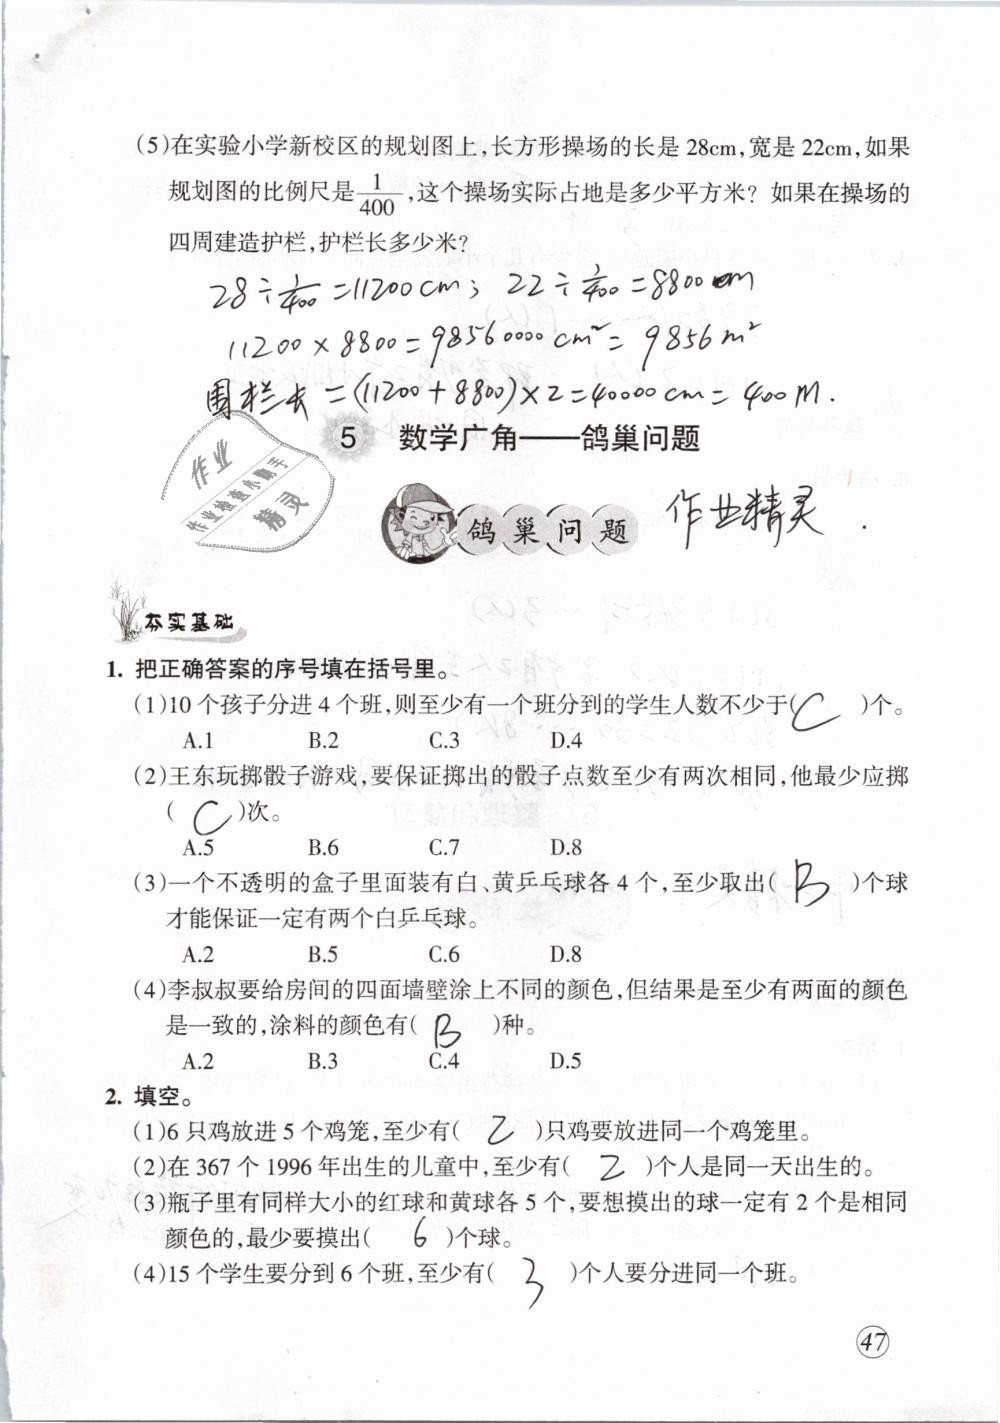 (5)在实验小学新校区的规划图上,长方形操场的长是28cm,宽是22cm,如果
规划图的比例尺是1/400,这个操场实际占地是多少平方米？如果在操场的
四周建造护栏,护栏长多少米?
28÷1/400=11200cm; 22÷1/400=8800cm
11200×8800=98560000cm²=9856m²
围栏长=(11200+8800)×2=40000cm=400M.
5 数学广角——鸽巢问题
作业
作业检查小助手
精灵
鸽巢问题
作业精灵.
夯实基础
1. 把正确答案的序号填在括号里。
(1)10个孩子分进4个班,则至少有一个班分到的学生人数不少于(C)个。
A.1 B.2 C.3 D.4
(2)王东玩掷骰子游戏,要保证掷出的骰子点数至少有两次相同,他最少应掷
(C)次。
A.5 B.6 C.7 D.8
(3)一个不透明的盒子里面装有白、黄乒乓球各4个,至少取出(B)个球
才能保证一定有两个白乒乓球。
A.2 B.5 C.6 D.8
(4)李叔叔要给房间的四面墙壁涂上不同的颜色,但结果是至少有两面的颜色
是一致的,涂料的颜色有(B)种。
A.2 B.3 C.4 D.5
2. 填空。
(1)6只鸡放进5个鸡笼,至少有(2)只鸡要放进同一个鸡笼里。
(2)在367个1996年出生的儿童中,至少有(2)个人是同一天出生的。
(3)瓶子里有同样大小的红球和黄球各5个,要想摸出的球一定有2个是相同
颜色的,最少要摸出(6)个球。
(4)15个学生要分到6个班,至少有(3)个人要分进同一个班。
47